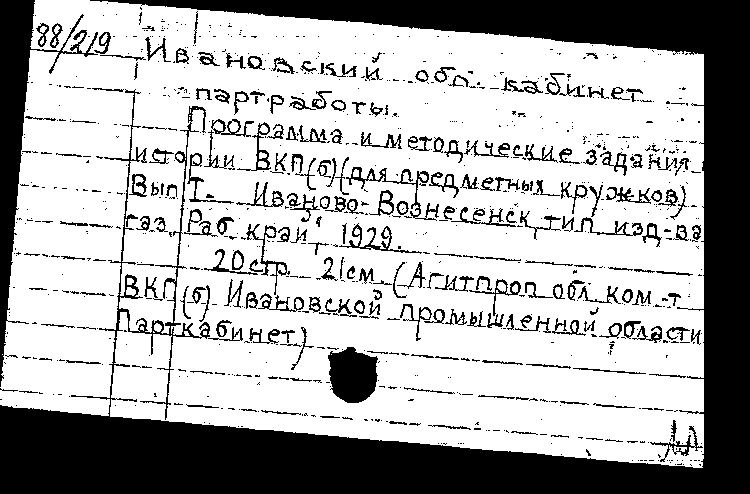 88/219 Ивановский обл. кабинет
партработы.
Программа и методические задания
истории ВКП(б) (для предметных кружков)
Вып. I- Иваново-Вознесенск, тип. изд-ва
газ. "Раб. край", 1929.
20 стр. 21 см. (Агитпроп обл. ком-т
ВКП(б) Ивановской промышленной области
Парткабинет)